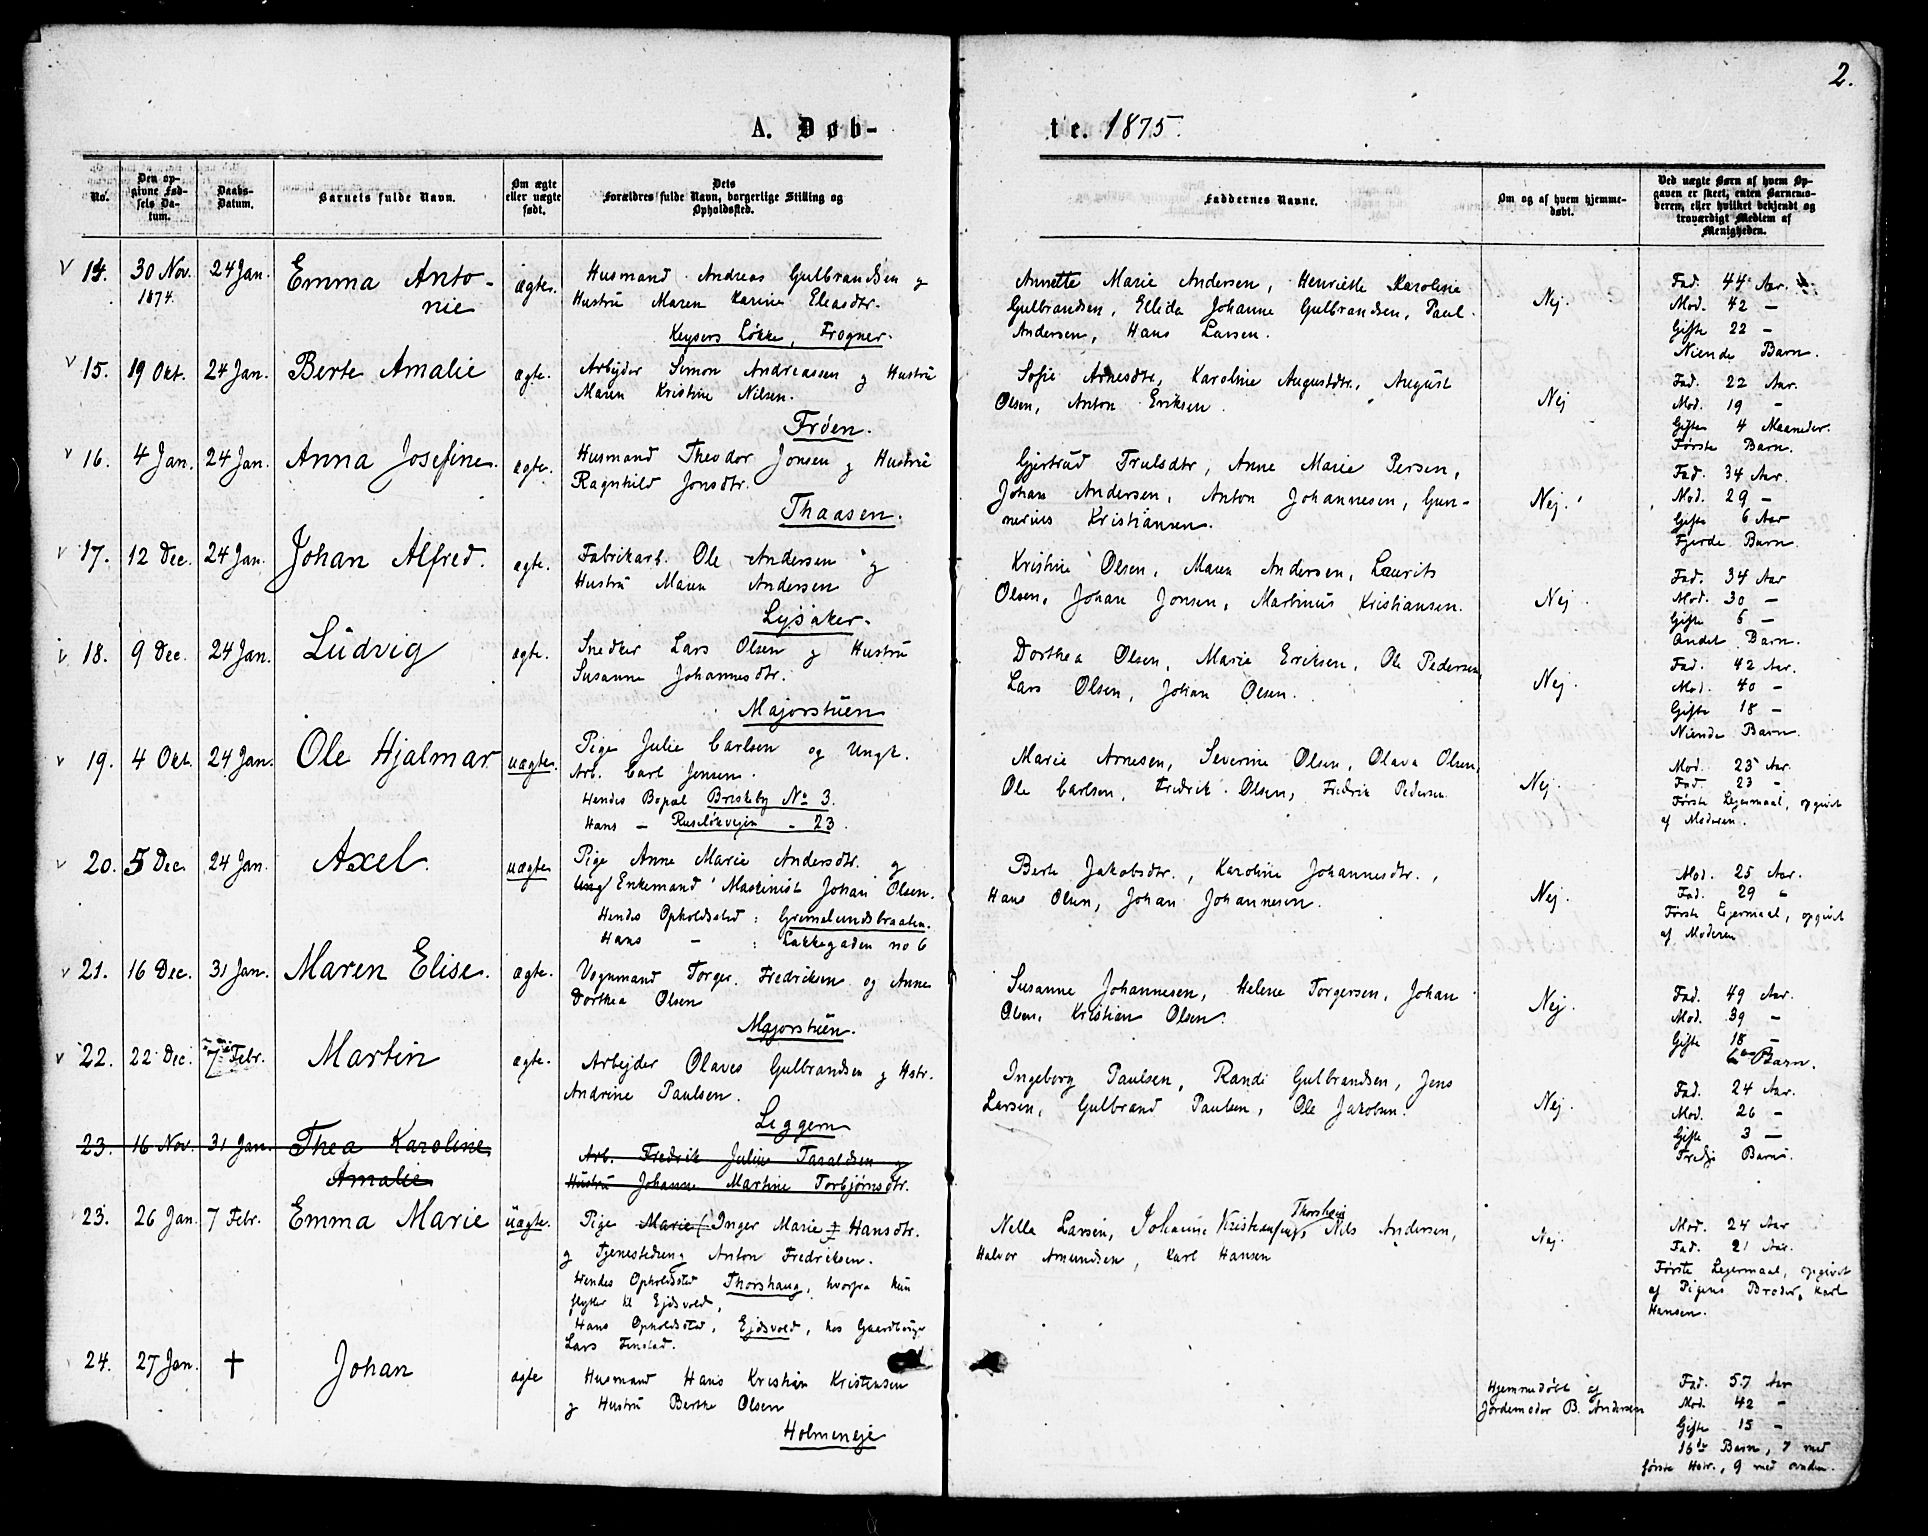 2.
A. Døb-
te. 1875.
No.
Den op-
givne Fød-
sels Da-
tum.
Daabs-
Datum.
Barnets fulde Navn.
Om ægte
eller uægte
født.
Dets
Forældres fulde Navn, borgerlige Stilling og
Opholdssted.
Faddernes Navne.
Om og af hvem hjemme-
døbt.
Ved uægte Børn af hvem Op-
gaven er skeet, enten Barnemo-
deren, eller hvilket bekjendt og
troværdigt Medlem af
Menigheden.
14. 30 Nov. 24 Jan. Emma Anto-
1874. nie
ægte.
Husmand Andreas Gulbrandsen og
Hustru Maren Karine Eliasdtr.
Keysers Løkke, Frogner.
Annette Marie Andersen, Henriette Karoline
Gulbrandsen, Ellida Johanne Gulbrandsen, Paul
Andersen, Hans Larsen.
Nej.
Fad. 44 Aar.
Mod. 42 -
Gifte 22 -
Niende Barn.
15. 19 Okt. 24 Jan. Berte Amalie ægte.
Arbejder Simon Andreassen og Hustru
Maren Kristine Nilsen.
Frøen.
Sofie Arnesdtr, Karoline Augustdtr., August
Olsen, Anton Eriksen.
Nej
Fad. 22 Aar.
Mod. 19 -
Gifte 4 Maaneder.
Første Barn.
16. 4 Jan. 24 Jan. Anna Josefine. ægte.
Husmand Theodor Jonsen og Hustru
Ragnhild Jonsdtr.
Thaasen.
Gjertrud Trulsdtr, Anne Marie Persen,
Johan Andersen, Anton Johannesen, Gun-
nerius Kristiansen.
Nej.
Fad. 34 Aar.
Mod. 29 -
Gifte 6 Aar
Fjerde Barn.
17. 12 Dec. 24 Jan. Johan Alfred. ægte.
Fabrikarb. Ole Andersen og
Hustru Maren Andersen
Lysaker.
Kristine Olsen, Maren Andersen, Laurits
Olsen, Johan Jonsen, Martinus Kristiansen.
Nej.
Fad. 34 Aar
Mod. 30 -
Gifte 6 -
Andet Barn.
18. 9 Dec. 24 Jan. Ludvig ægte.
Snedker Lars Olsen og Hustru
Susanne Johannesdtr.
Majorstuen
Dorthea Olsen, Marie Eriksen, Ole Pedersen,
Lars Olsen, Johan Olsen.
Nej.
Fad. 42 Aar.
Mod. 40 -
Gifte 18 -
Niende Barn.
19. 4 Okt. 24 Jan. Ole Hjalmar uægte.
Pige Julie Carlsen og Ungk.
Arb. Carl Jensen.
Hendes Bopæl Briskeby No 3.
Hans - Ruseløkvejen - 23.
Marie Arnesen, Severine Olsen, Olava Olsen,
Ole Carlsen, Fredrik Olsen, Fredrik Pedersen
Nej.
Mod. 25 Aar.
Fad. 23 -
Første Lejermaal, opgivet
af Moderen.
20. 5 Dec. 24 Jan. Axel. uægte
Pige Anne Marie Andersdtr. og
Ung Enkemand Maskinist Johan Olsen.
Hendes Opholdssted: Grimelundsbraaten.
Hans - : Lakkegaden no 6
Berte Jakobsdtr., Karoline Johannesdtr.,
Hans Olsen, Johan Johannesen.
Nej.
Mod. 25 Aar.
Fad. 29 "
Første Lejermaal, opgivet
af Moderen
21. 16 Dec. 31 Jan. Maren Elise. ægte.
Vognmand Torger Fredriksen og Anne
Dorthea Olsen
Majorstuen.
Susanne Johannesen, Helene Torgersen, Johan
Olsen, Kristian Olsen.
Nej.
Fad. 49 Aar.
Mod. 39 -
Gifte 18 -
6te Barn.
22. 22 Dec. 7 Febr. Martin ægte.
Arbejder Olaves Gulbrandsen og Hstr.
Andrine Paulsen.
Leggern
Ingeborg Paulsen, Randi Gulbrandsen, Jens
Larsen, Gulbrand Paulsen, Ole Jakobsen.
Nej.
Fad. 24 Aar.
Mod. 26 -
Gifte 3 -
Tredje Barn.
23. 16 Nov. 31 Jan. Thea Karoline
Amalie
Arb. Fredrik Julius Taraldsen og
Hustru Johanne Martine Torbjørnsdtr.
23. 26 Jan. 7 Febr. Emma Marie uægte.
Pige Marie (Inger Marie) Hansdtr.
og Tjenestedreng Anton Fredriksen.
Hendes Opholdssted Thorshaug, hvorfra hun
flytter til Ejdsvold,
Hans Opholdssted, Ejdsvold, hos Gaardbruger
Lars Finstad.
Thorshaug
Nella Larsen, Johanne Kristiansen, Nils Andersen,
Halvor Amundsen, Karl Hansen
Nej.
Mod. 24 Aar
Fad. 21 Aar.
Første Lejermaal, opgivet
af Pigens Broder, Karl
Hansen.
24. 27 Jan. † Johan ægte
Husmand Hans Kristian Kristensen
og Hustru Berthe Olsen
Holmeneje
Hjemmedøbt af
Jordemoder B. Andersen
Fad. 57 Aar
Mod. 42 -
Gifte 15 -
16de Barn, 7 med
første Hstr., 9 med anden.